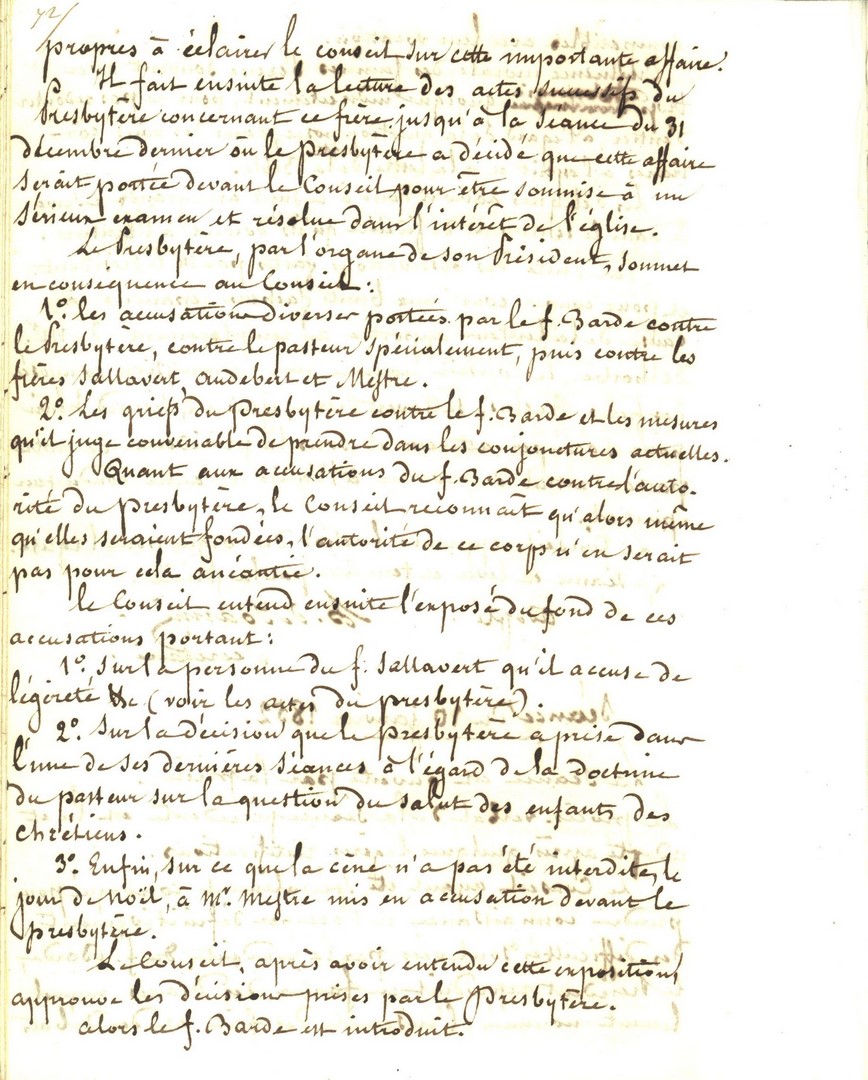 72/
propres à éclairer le conseil sur cette importante affaire.
Il fait ensuite la lecture des actes successifs du
Presbytère concernant ce frère jusqu'à la séance du 31
décembre dernier où le presbytère a décidé que cette affaire
serait portée devant le Conseil pour être soumise à un
sérieux examen et résolue dans l'intérêt de l'église.
Le Presbytère, par l'organe de son Président, soumet
en conséquence au Conseil :
1º. les accusations diverses portées par le f. Barde contre
le Presbytère, contre le pasteur spécialement, puis contre les
frères Sallavert, Audebert et Mestre.
2º. Les griefs du Presbytère contre le f. Barde et les mesures
qu'il juge convenable de prendre dans les conjonctures actuelles.
Quant aux accusations du f. Barde contre l'auto-
rité du presbytère, le Conseil reconnaît qu'alors même
qu'elles seraient fondées, l'autorité de ce corps n'en serait
pas pour cela anéantie.
le Conseil entend ensuite l'exposé du fond de ces
accusations portant :
1º. Sur la personne du f. Sallavert qu'il accuse de
légèreté &c (voir les actes du presbytère).
2º. Sur la décision que le presbytère a prise dans
l'une de ses dernières séances à l'égard de la doctrine
du pasteur sur la question du salut des enfants des
chrétiens.
3º. Enfin, sur ce que la cène n'a pas été interdite, le
jour de Noël, à Mr. Mestre mis en accusation devant le
presbytère.
Le Conseil, après avoir entendu cette exposition,
approuve les décisions prises par le Presbytère.
alors le f. Barde est introduit.